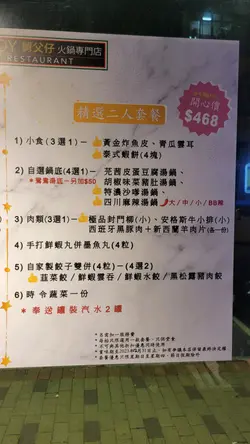 舅父仔 火鍋專門店
RESTAURANT
精選二人套餐
開心價
$468
1) 小食(3選1)-黃金炸魚皮、青瓜雲耳
泰式蝦餅(4塊)
2) 自選鍋底(4選1)-芫茜皮蛋豆腐湯鍋、
*鴛鴦湯底一另加$50
胡椒味菜豬肚湯鍋、
特濃沙嗲湯鍋、
四川麻辣湯鍋 大/中/小/BB辣
3) 肉類(3選1)-極品封門柳(小)、安格斯牛小排(小)
西班牙黑豚肉+新西蘭羊肉片(各一份)
4) 手打鮮蝦丸併墨魚丸(4粒)
5) 自家製餃子雙併(4粒)-(4選2)
韮菜餃/鮮蝦雲吞/鮮蝦水餃/黑松露豬肉餃
6) 時令蔬菜一份
*奉送罐裝汽水2罐
*另需加一服務費